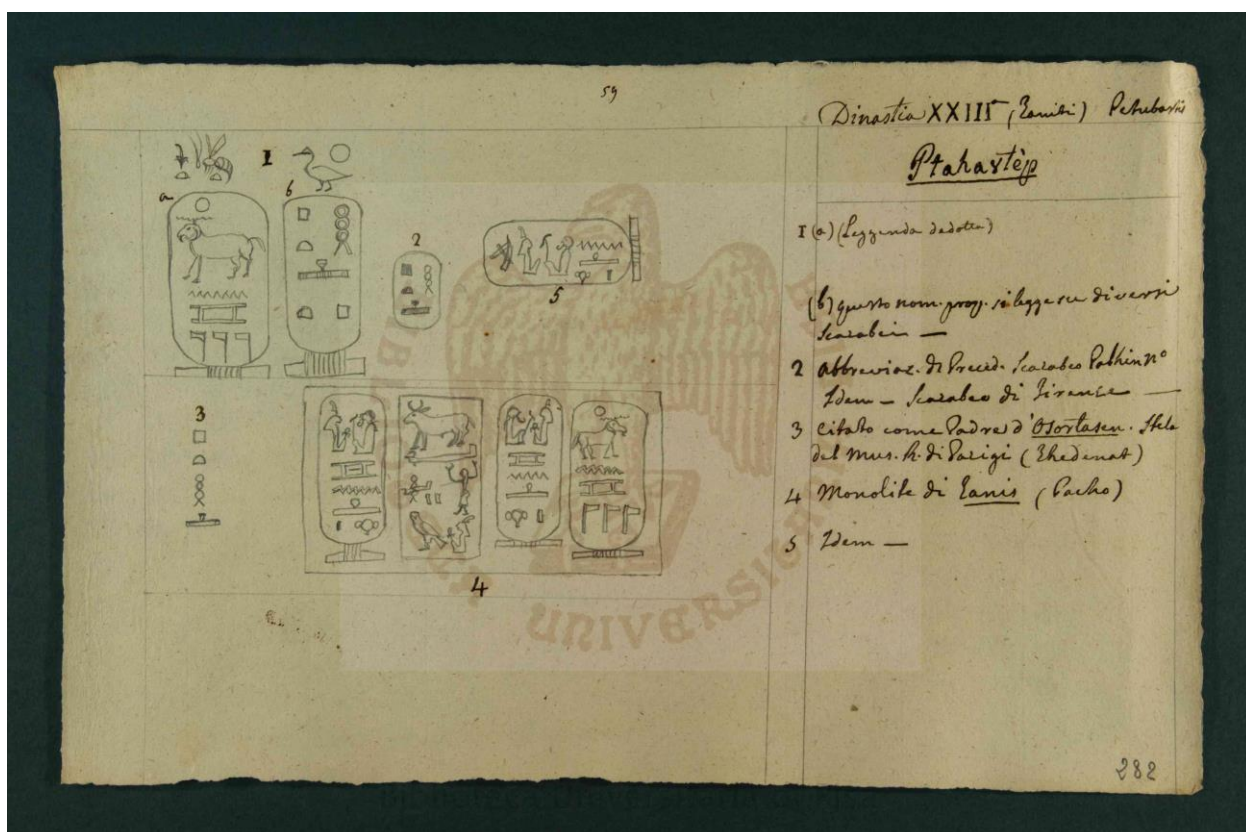 59
Dinastia XXIIIª (Taniti) Petubastis
Ptahaxtèp
I
a
b
2
5
3
4
I (a) (Leggenda dedotta)
(b) questo nom. prop. si legge su diversi
Scarabei —
2 abbreviaz. di Preced. Scarabeo nº
Idem — Scarabeo di Firenze —
3 citato come Padre d'Osortasen. Stela
del mus. R. di Parigi (Thedenat)
4 Monolite di Tanis (Pacho)
5 Idem —
UNIVERSI
282